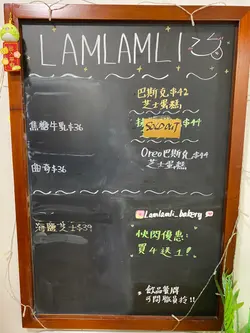 LAMLAMLI
巴斯克 $42
芝士蛋糕
焦糖牛乳$36
SOLD OUT
$44
Oreo巴斯克 $44
芝士蛋糕
曲奇$36
海鹽芝士$39
Lamlamli_bakery
快閃優惠:
買4送1!
飲品餐牌
可問職員拎!!